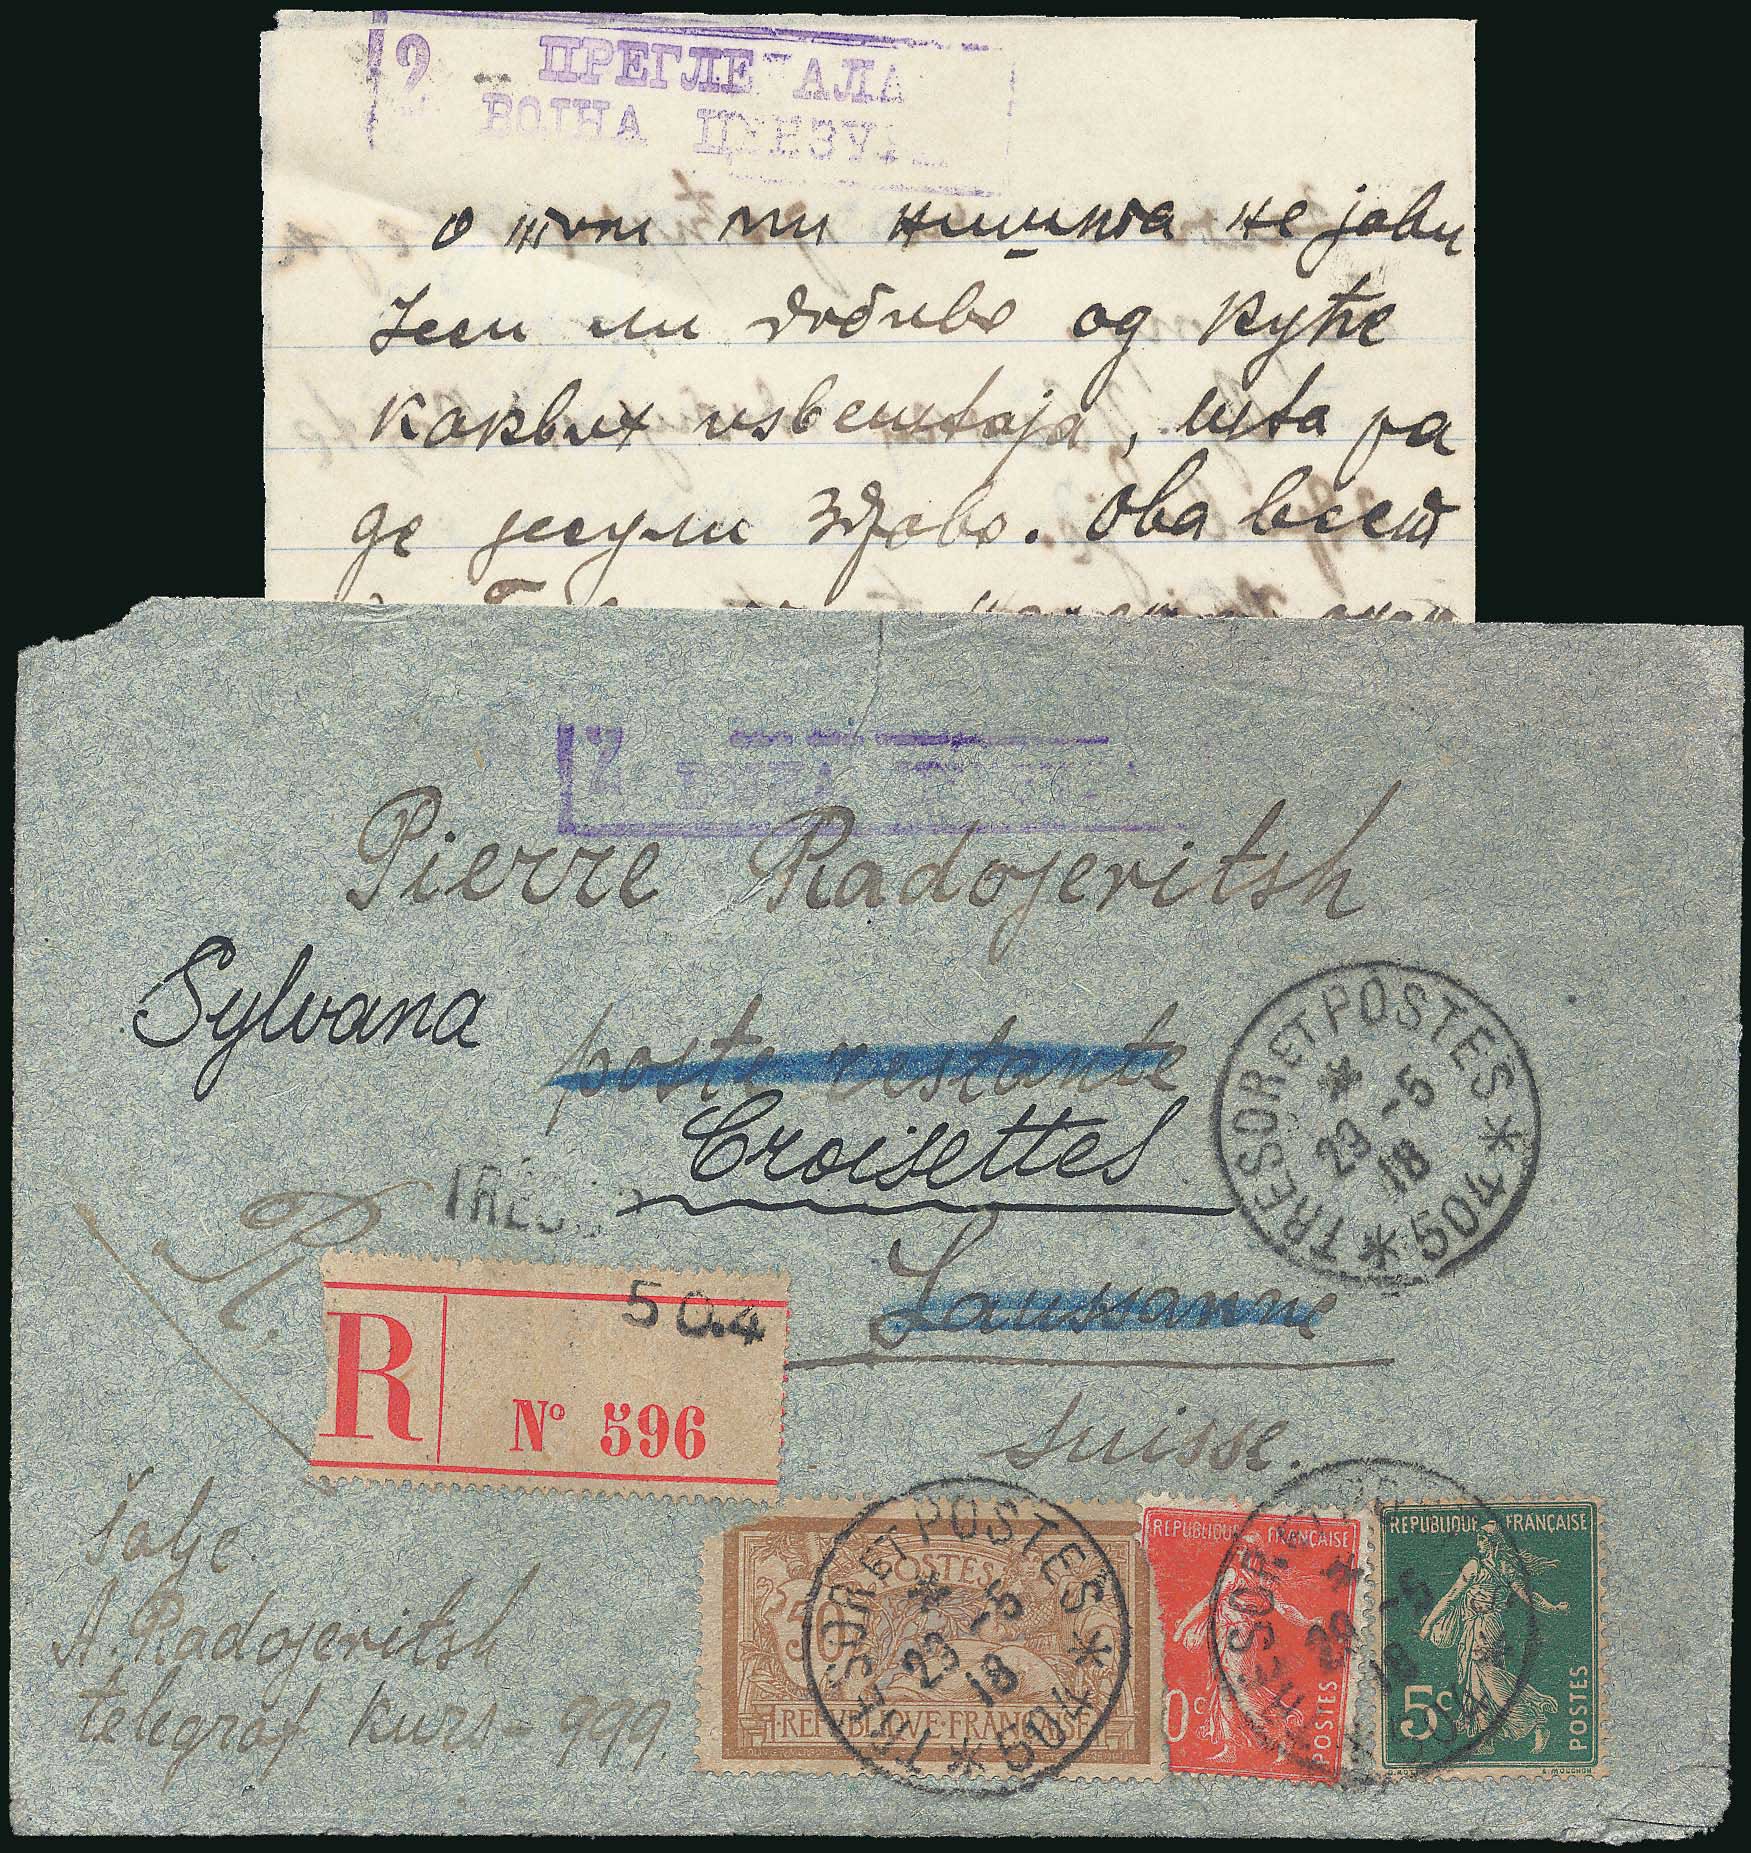 2 ПРЕГЛЕДАЛА
ВОЈНА ЦЕНЗУРА
о том ми ништа не јави
Јеси ли добиво од куће
каквих извештаја, шта ра
де јесули здраво. Ова вест
2
ВОЈНА
Pierre Radojevitsh
Sylvana
poste restante
Croisettes
TRESOR ET POSTES * 504 *
* 29 -5 18
TRÉSOR
R.
504
R
Nº 596
Lausanne
Suisse.
šalje.
A. Radojevitsh
telegraf kurs - 999.
50 POSTES
REPUBLIQUE FRANÇAISE
TRESOR ET POSTES * 504 *
* 29 -5 18
REPUBLIQUE FRANÇAISE
0c POSTES
TRESOR ET POSTES * 504 *
* 29 -5 18
REPUBLIQUE FRANÇAISE
5c POSTES
L. MOUCHON